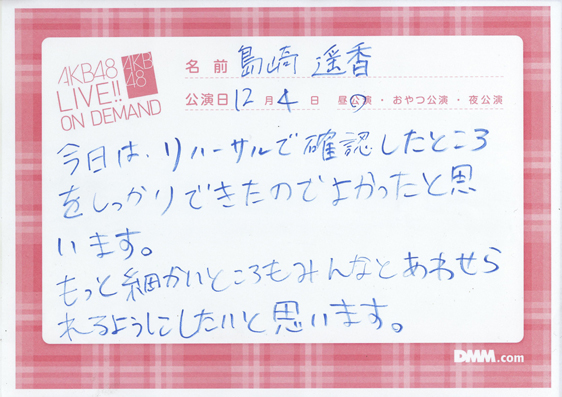 AKB48
LIVE!!
ON DEMAND
AKB
48
名前 島崎 遥香
公演日 12月4日 昼公演・おやつ公演・夜公演
今日は、リハーサルで確認したところ
をしっかりできたのでよかったと思
います。
もっと細かいところもみんなとあわせら
れるようにしたいと思います。
DMM.com